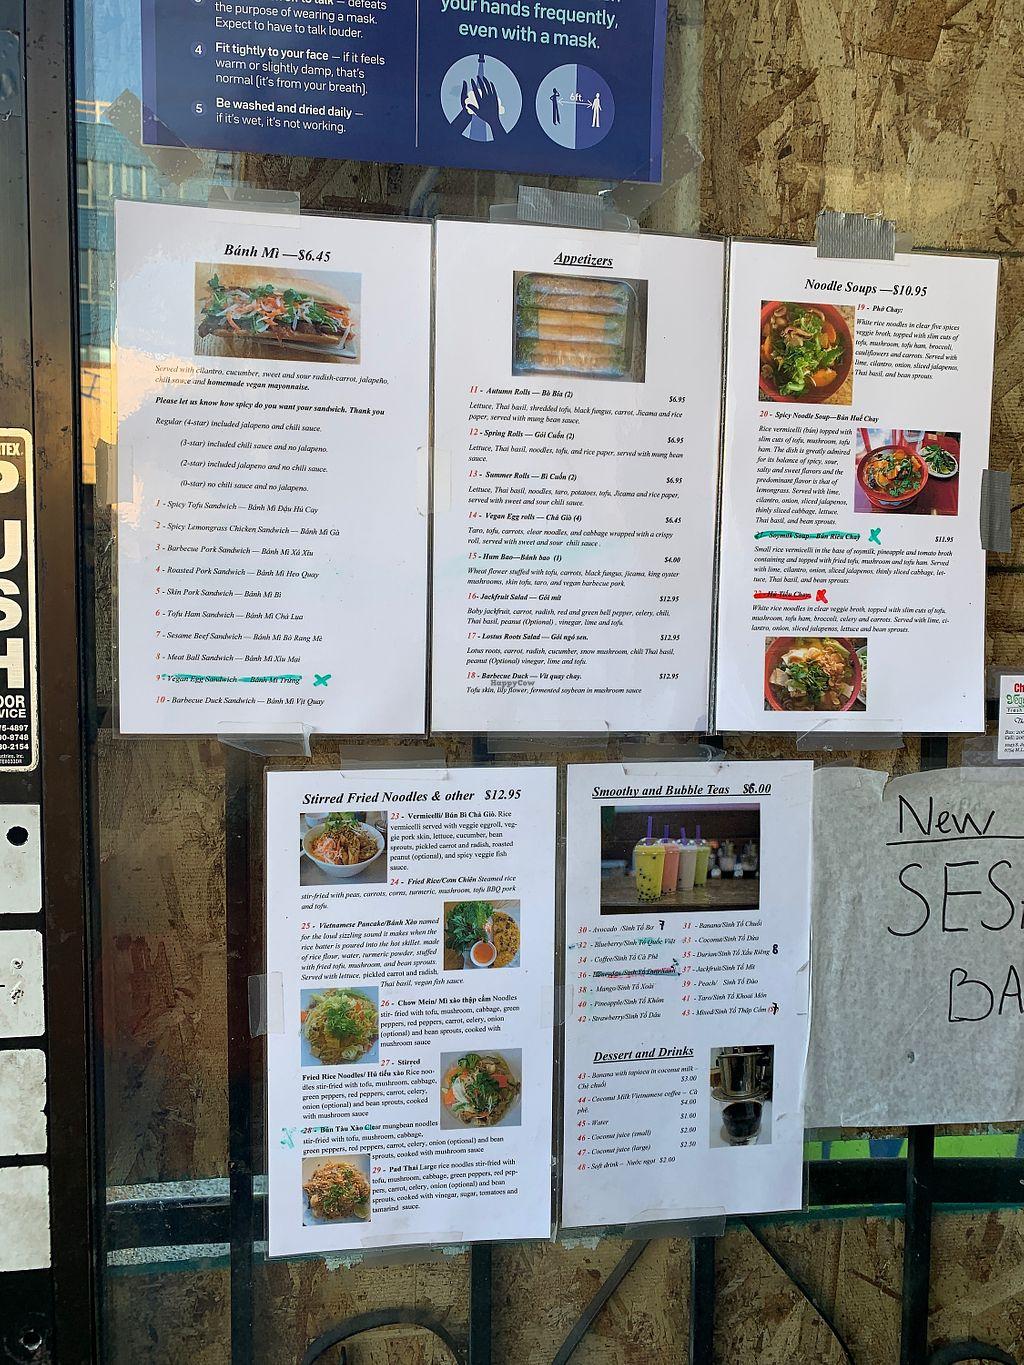 the purpose of wearing a mask.
Expect to have to talk louder.
4 Fit tightly to your face — if it feels
warm or slightly damp, that's
normal (it's from your breath).
5 Be washed and dried daily —
if it's wet, it's not working.
your hands frequently,
even with a mask.
6ft.
Bánh Mì —$6.45
Served with cilantro, cucumber, sweet and sour radish-carrot, jalapeño,
chili sauce and homemade vegan mayonnaise.
Please let us know how spicy do you want your sandwich. Thank you
Regular (4-star) included jalapeno and chili sauce.
(3-star) included chili sauce and no jalapeno.
(2-star) included jalapeno and no chili sauce.
(0-star) no chili sauce and no jalapeno.
1 - Spicy Tofu Sandwich — Bánh Mì Đậu Hủ Cay
2 - Spicy Lemongrass Chicken Sandwich — Bánh Mì Gà
3 - Barbecue Pork Sandwich — Bánh Mì Xá Xíu
4 - Roasted Pork Sandwich — Bánh Mì Heo Quay
5 - Skin Pork Sandwich — Bánh Mì Bì
6 - Tofu Ham Sandwich — Bánh Mì Chả Lụa
7 - Sesame Beef Sandwich — Bánh Mì Bò Rang Mè
8 - Meat Ball Sandwich — Bánh Mì Xíu Mại
9 - Vegan Egg Sandwich — Bánh Mì Trứng X
10 - Barbecue Duck Sandwich — Bánh Mì Vịt Quay
Appetizers
11 - Autumn Rolls – Bò Bía (2) $6.95
Lettuce, Thai basil, shredded tofu, black fungus, carrot, Jicama and rice
paper, served with mung bean sauce.
12 - Spring Rolls – Gỏi Cuốn (2) $6.95
Lettuce, Thai basil, noodles, tofu, and rice paper, served with mung bean
sauce.
13 - Summer Rolls – Bì Cuốn (2) $6.95
Lettuce, Thai basil, noodles, taro, potatoes, tofu, Jicama and rice paper,
served with sweet and sour chili sauce.
14 - Vegan Egg rolls – Chả Giò (4) $6.45
Taro, tofu, carrots, clear noodles, and cabbage wrapped with a crispy
roll, served with sweet and sour chili sauce .
15 - Hum Bao—Bánh bao (1) $4.00
Wheat flour stuffed with tofu, carrots, black fungus, jicama, king oyster
mushrooms, skin tofu, taro, and vegan barbecue pork.
16- Jackfruit Salad – Gỏi mít $12.95
Baby jackfruit, carrot, radish, red and green bell pepper, celery, chili,
Thai basil, peanut (Optional) , vinegar, lime and tofu.
17 - Lostus Roots Salad – Gỏi ngó sen. $12.95
Lotus roots, carrot, radish, cucumber, snow mushroom, chili Thai basil,
peanut (Optional) vinegar, lime and tofu.
18 - Barbecue Duck – Vịt quay chay. $12.95
HappyCow
Tofu skin, lily flower, fermented soybean in mushroom sauce
Noodle Soups —$10.95
19 - Phở Chay:
White rice noodles in clear five spices
veggie broth, topped with slim cuts of
tofu, mushroom, tofu ham, broccoli,
cauliflowers and carrots. Served with
lime, cilantro, onion, sliced jalapenos,
Thai basil, and bean sprouts.
20 - Spicy Noodle Soup—Bún Huế Chay
Rice vermicelli (bún) topped with
slim cuts of tofu, mushroom, tofu
ham. The dish is greatly admired
for its balance of spicy, sour,
salty and sweet flavors and the
predominant flavor is that of
lemongrass. Served with lime,
cilantro, onion, sliced jalapenos,
thinly sliced cabbage, lettuce.
Thai basil, and bean sprouts.
21 - Soymilk Soup—Bún Riêu Chay X $11.95
Small rice vermicelli in the base of soymilk, pineapple and tomato broth
containing and topped with fried tofu, mushroom and tofu ham. Served
with lime, cilantro, onion, sliced jalapenos, thinly sliced cabbage, let-
tuce, Thai basil, and bean sprouts.
22 - Hủ Tiếu Chay X
White rice noodles in clear veggie broth, topped with slim cuts of tofu,
mushroom, tofu ham, broccoli, celery and carrots. Served with lime, ci-
lantro, onion, sliced jalepenos, lettuce and bean sprouts.
Stirred Fried Noodles & other $12.95
23 - Vermicelli/ Bún Bì Chả Giò. Rice
vermicelli served with veggie eggroll, veg-
gie pork skin, lettuce, cucumber, bean
sprouts, pickled carrot and radish, roasted
peanut (optional), and spicy veggie fish
sauce.
24 - Fried Rice/Cơm Chiên Steamed rice
stir-fried with peas, carrots, corns, turmeric, mushroom, tofu BBQ pork
and tofu.
25 - Vietnamese Pancake/Bánh Xèo named
for the loud sizzling sound it makes when the
rice batter is poured into the hot skillet. made
of rice flour, water, turmeric powder, stuffed
with fried tofu, mushroom, and bean sprouts.
Served with lettuce, pickled carrot and radish,
Thai basil, vegan fish sauce.
26 - Chow Mein/ Mì xào thập cẩm Noodles
stir- fried with tofu, mushroom, cabbage, green
peppers, red peppers, carrot, celery, onion
(optional) and bean sprouts, cooked with
mushroom sauce
27 - Stirred
Fried Rice Noodles/ Hủ tiếu xào Rice noo-
dles stir-fried with tofu, mushroom, cabbage,
green peppers, red peppers, carrot, celery,
onion (optional) and bean sprouts, cooked
with mushroom sauce
28 - Bún Tàu Xào Clear mungbean noodles
stir-fried with tofu, mushroom, cabbage,
green peppers, red peppers, carrot, celery, onion (optional) and bean
sprouts, cooked with mushroom sauce
29 - Pad Thai Large rice noodles stir-fried with
tofu, mushroom, cabbage, green peppers, red pep-
pers, carrot, celery, onion (optional) and bean
sprouts, cooked with vinegar, sugar, tomatoes and
tamarind sauce.
Smoothy and Bubble Teas $6.00
30 - Avocado /Sinh Tố Bơ 7
31 - Banana/Sinh Tố Chuối
32 - Blueberry/Sinh Tố Quốc Việt
33 - Coconut/Sinh Tố Dừa
34 - Coffee/Sinh Tố Cà Phê
35 - Durian/Sinh Tố Xầu Riêng 8
37 - Jackfruit/Sinh Tố Mít
38 - Mango/Sinh Tố Xoài
39 - Peach/ Sinh Tố Đào
40 - Pineapple/Sinh Tố Khóm
41 - Taro/Sinh Tố Khoai Môn
42 - Strawberry/Sinh Tố Dâu
43 - Mixed/Sinh Tố Thập Cẩm 7
Dessert and Drinks
43 - Banana with tapioca in coconut milk –
Chè chuối $3.00
44 - Coconut Milk Vietnamese coffee – Cà
phê. $4.00
45 - Water $1.00
46 - Coconut juice (small) $2.00
47 - Coconut juice (large) $2.50
48 - Soft drink – Nước ngọt $2.00
New
SES
BA